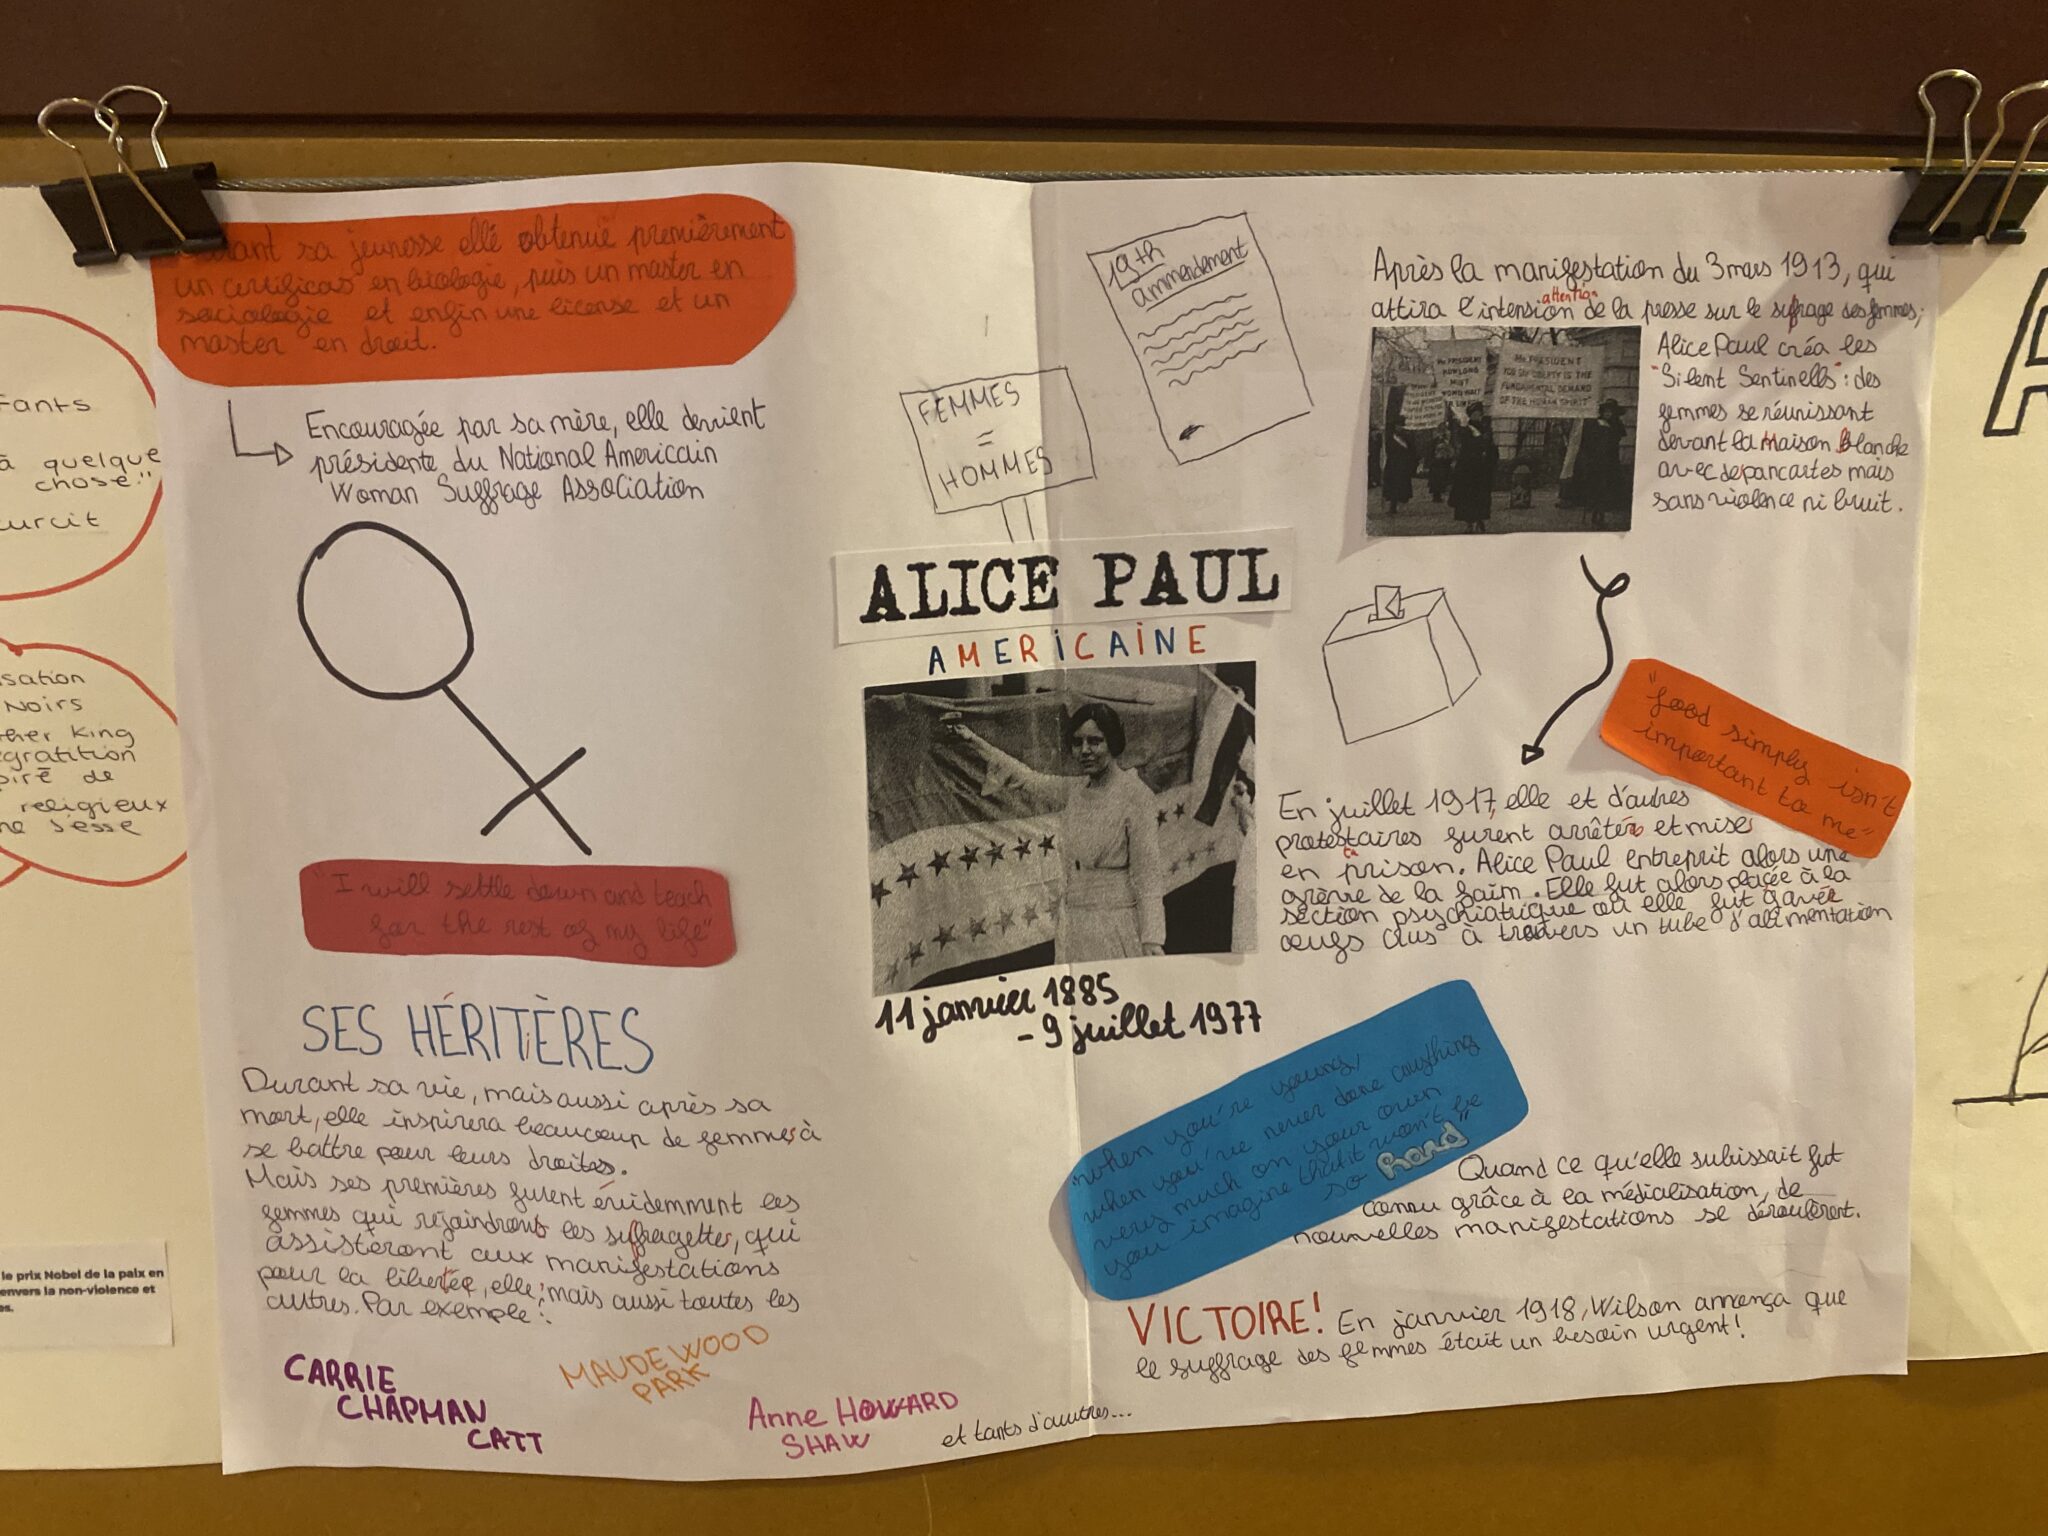 sa jeunesse elle obtenue premièrement
un certificas en biologie, puis un master en
sociologie et enfin une license et un
master en droit.
Encouragée par sa mère, elle devient
présidente du National Americain
Woman Suffrage Association
"I will settle down and teach
for the rest of my life"
SES HÉRITÈRES
Durant sa vie, mais aussi après sa
mort, elle inspirera beaucoup de femmes à
se battre pour leurs droites.
Mais ses premières furent évidemment les
femmes qui rejoindront les suffragettes, qui
assistèront aux manifestations
pour la libertée, elle; mais aussi toutes les
autres. Par exemple:
CARRIE
CHAPMAN
CATT
MAUDE WOOD
PARK
Anne HOWARD
SHAW
et tants d'autres...
FEMMES
=
HOMMES
19th
ammendement
ALICE PAUL
AMERICAINE
11 janvier 1885
- 9 juillet 1977
Après la manifestation du 3 mars 1913, qui
attention
attira l'intension de la presse sur le suffrage des femmes,
MR PRESIDENT
HOW LONG
MUST
WOMEN WAIT
MR PRESIDENT
YOU SAY LIBERTY IS THE
FUNDAMENTAL DEMAND
OF THE HUMAN SPIRIT
Alice Paul créa les
"Silent Sentinells": des
femmes se réunissant
devant la Maison Blanche
avec de pancartes mais
sans violence ni bruit.
"food simply isn't
important to me"
En juillet 1917, elle et d'autres
protestaires furent arrêtés et mises
en prison. Alice Paul entreprit alors une
grève de la faim. Elle fut alors placée à la
section psychiatrique où elle fut gavée
oeufs crus à travers un tube d'alimentation
"when you're young,
when you've never done anything
very much on your own
you imagine that it won't be
so hard"
Quand ce qu'elle subissait fut
connu grâce à la médialisation, de
nouvelles manifestations se déroulèrent.
VICTOIRE! En janvier 1918, Wilson annonça que
le suffrage des femmes était un besoin urgent!
à quelque
chose."
Noirs
King
religieux
le prix Nobel de la paix en
envers la non-violence et